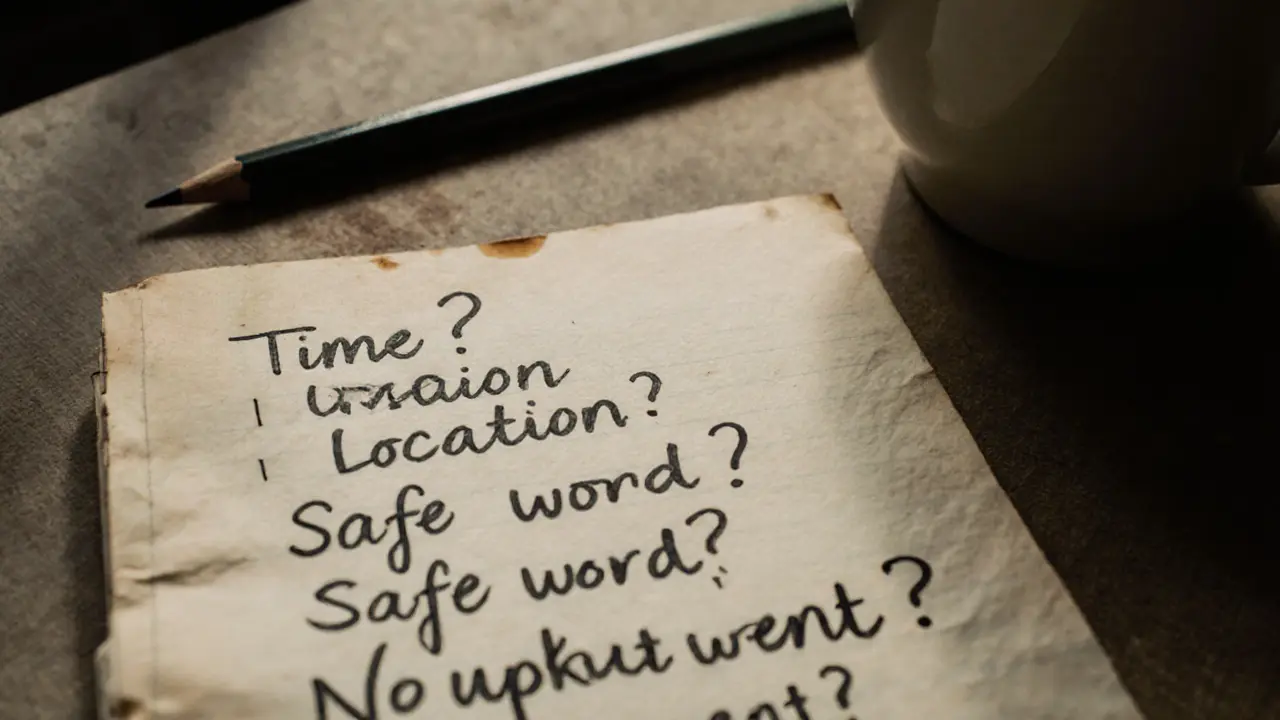 Time?
Location?
Safe word?
Safe word?
No upkut went?